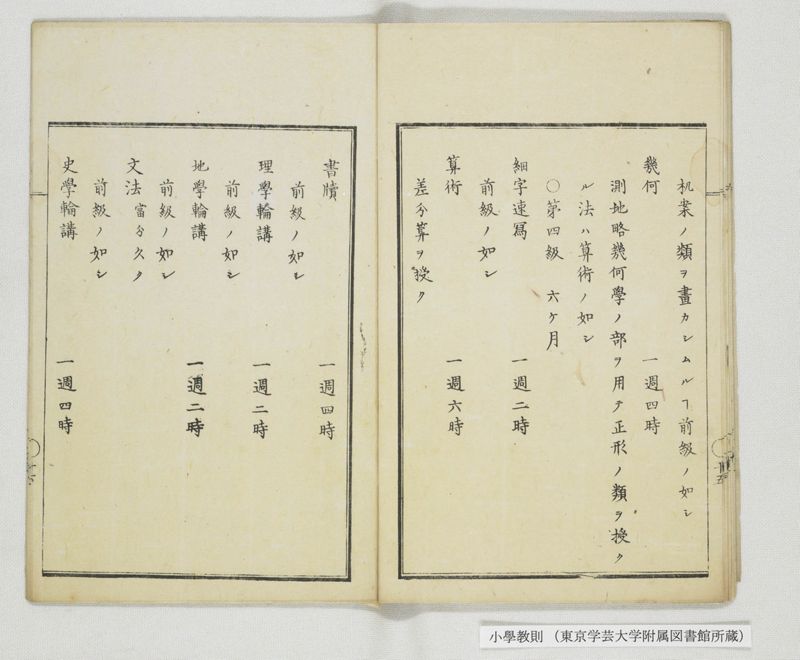 机業ノ類ヲ畫カシムルヿ前級ノ如シ
幾何 一週四時
測地略幾何學ノ部ヲ用テ正形ノ類ヲ授ク
ル法ハ算術ノ如シ
○第四級 六ケ月
細字速寫 一週二時
前級ノ如シ
算術 一週六時
差分算ヲ授ク
書牘 一週四時
前級ノ如シ
理學輪講 一週二時
前級ノ如シ
地學輪講 一週二時
前級ノ如シ
文法 當分欠ク
前級ノ如シ
史學輪講 一週四時
小學教則 （東京学芸大学附属図書館所蔵）